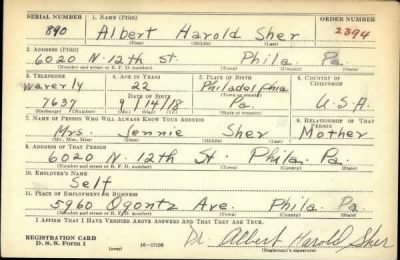 SERIAL NUMBER 1. NAME (PRINT) ORDER NUMBER
890 Albert Harold Sher 2394
(First) (Middle) (Last)
2. ADDRESS (PRINT)
6020 N. 12th St. Phila. Pa.
(Number and street or R. F. D. number) (Town) (County) (State)
3. TELEPHONE 4. AGE IN YEARS 5. PLACE OF BIRTH 6. COUNTRY OF CITIZENSHIP
Waverly 22 Philadelphia
DATE OF BIRTH (Town or county)
7637 9/14/18 Pa. U.S.A.
(Exchange) (Number) (Mo.) (Day) (Yr.) (State or country)
7. NAME OF PERSON WHO WILL ALWAYS KNOW YOUR ADDRESS 8. RELATIONSHIP OF THAT PERSON
Mrs. Jennie Sher Mother
(Mr., Mrs., Miss) (First) (Middle) (Last)
9. ADDRESS OF THAT PERSON
6020 N. 12th St. Phila. Pa.
(Number and street or R. F. D. number) (Town) (County) (State)
10. EMPLOYER'S NAME
Self
11. PLACE OF EMPLOYMENT OR BUSINESS
5960 Ogontz Ave. Phila. Pa.
(Number and street or R. F. D. number) (Town) (County) (State)
I AFFIRM THAT I HAVE VERIFIED ABOVE ANSWERS AND THAT THEY ARE TRUE.
REGISTRATION CARD
D. S. S. Form 1 (over) Dr. Albert Harold Sher
(Registrant's signature)